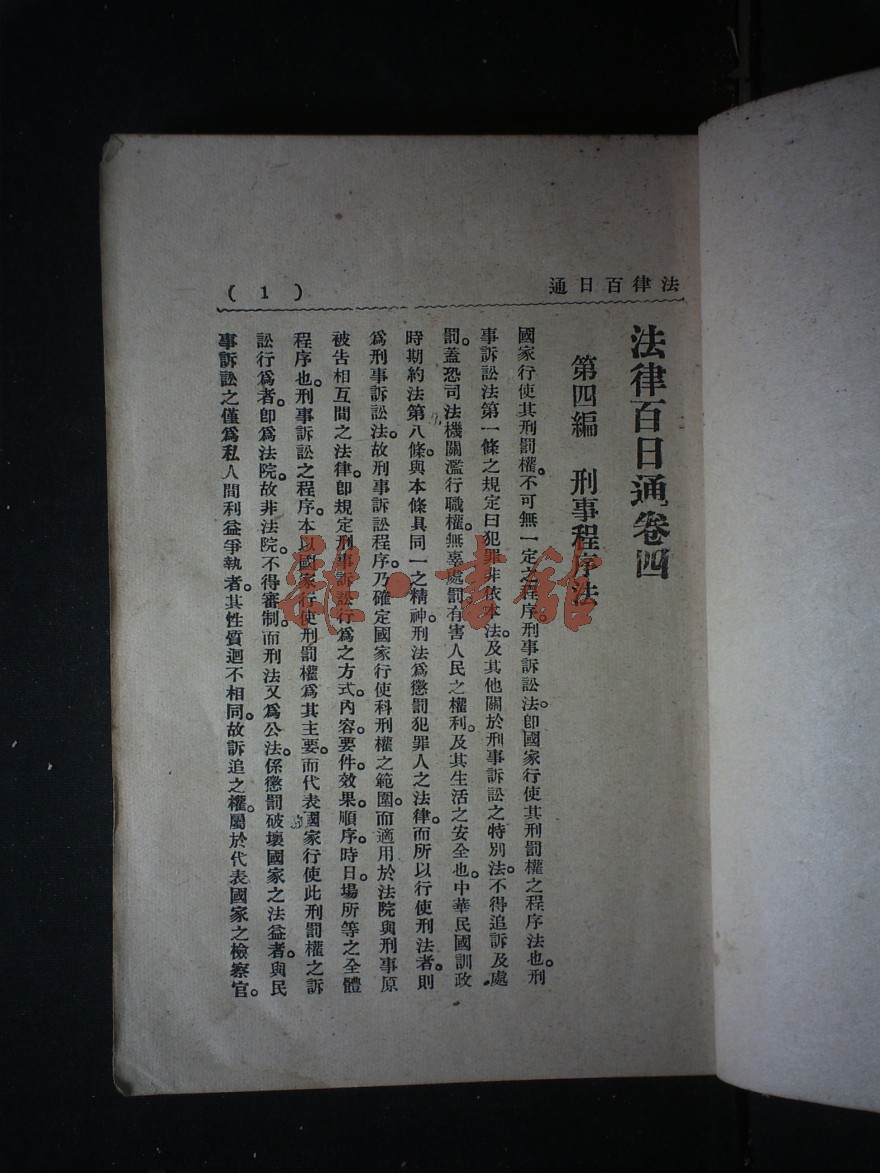 法律百日通
( 1 )
法律百日通卷四
第四編 刑事程序法
國家行使其刑罰權。不可無一定之程序。刑事訴訟法。卽國家行使其刑罰權之程序法也。刑
事訴訟法第一條之規定曰犯罪非依本法。及其他關於刑事訴訟之特別法。不得追訴及處
罰。蓋恐司法機關濫行職權。無辜處罰。有害人民之權利。及其生活之安全也。中華民國訓政
時期約法第八條。與本條具同一之精神。刑法爲懲罰犯罪人之法律。而所以行使刑法者。則
爲刑事訴訟法。故刑事訴訟程序。乃確定國家行使科刑權之範圍。而適用於法院與刑事原
被告相互間之法律。卽規定刑事訴訟行爲之方式。內容。要件。效果。順序。時日。場所等之全體
程序也。刑事訴訟之程序。本以國家行使刑罰權爲其主要。而代表國家行使此刑罰權之訴
訟行爲者。卽爲法院。故非法院。不得審制。而刑法又爲公法。係懲罰破壞國家之法益者。與民
事訴訟之僅爲私人間利益爭執者。其性質迴不相同。故訴追之權。屬於代表國家之檢察官。
雜·書館